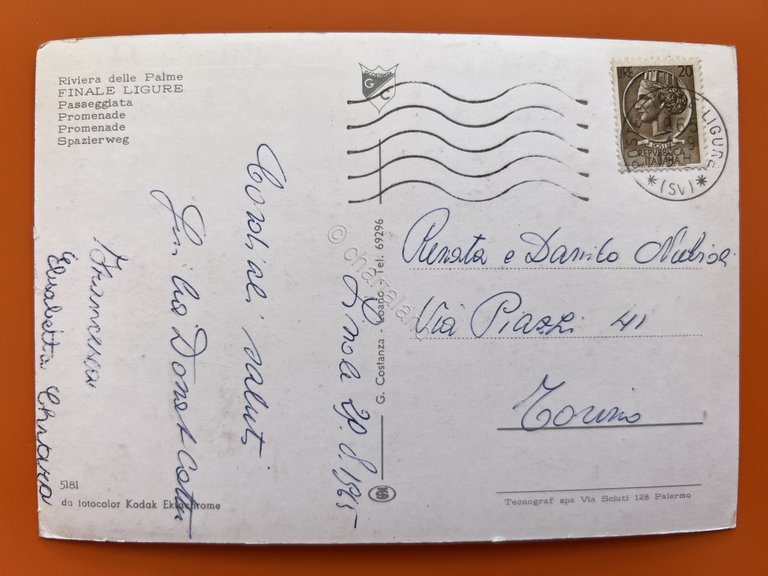 Riviera delle Palme
FINALE LIGURE
Passeggiata
Promenade
Promenade
Spazierweg
G C
LIRE 20
POSTE
REPVBBLICA
ITALIANA
LIGURE
*(SV)*
Cordiali saluti
Francesca
Elisabetta Chiara
29.8.1965
G. Costanza - Loano - Tel. 69296
Renata e Danilo
Via Piazzi 41
Torino
5181
da fotocolor Kodak Ektachrome
Tecnograf spa Via Sciuti 128 Palermo